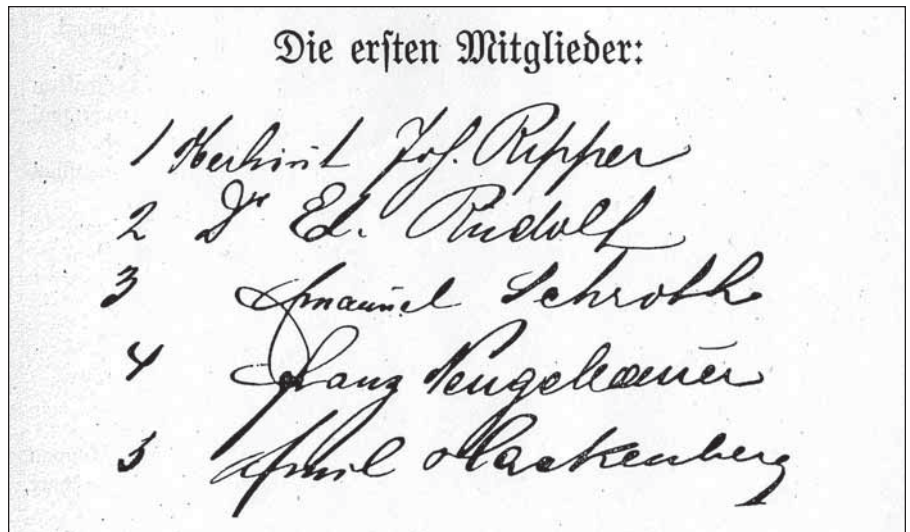 Die ersten Mitglieder:
1 Jos. Ripper
2 Dr Ed. Rudolf
3 Emanuel Schroth
4 Franz Neugebauer
5 Emil Hackenberg